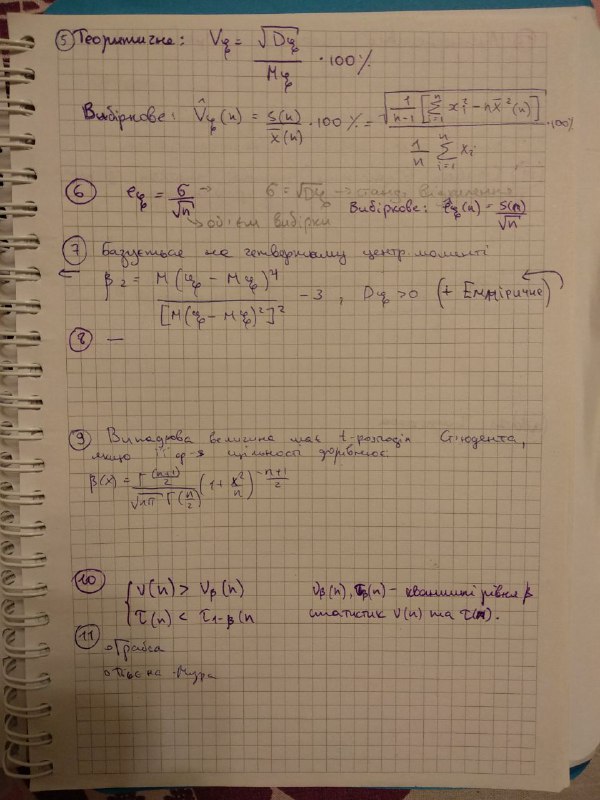 ⑤ Теоритичне: Vφ = √Dφ / Mφ · 100%
Вибіркове: V̂φ(n) = S(n) / x̄(n) · 100% = √(1/(n-1) [∑ᵢ₌₁ⁿ xᵢ² - n x̄²(n)]) / (1/n ∑ᵢ₌₁ⁿ xᵢ) · 100%
⑥ eφ = σ/√n → σ = √Dφ → станд. відхилення
→ об'єм вибірки Вибіркове: eφ(n) = S(n)/√n
⑦ Базується на четвертому центр. моменті
← β₂ = M(φ - Mφ)⁴ / [M(φ - Mφ)²]² - 3, Dφ > 0 (+ Емпіричне)
⑧ —
⑨ Випадкова величина має t-розподіл Стюдента,
якщо її ф-я щільності дорівнює:
β(x) = Γ(n+1)/2 / √nπ Γ(n/2) (1 + x²/n)^(-(n+1)/2)
⑩ { ν(n) > νβ(n) νβ(n), τβ(n) - квантилі рівня β
τ(n) < τ₁₋β(n статистик ν(n) та τ(n).
⑪ ◦ Граббса